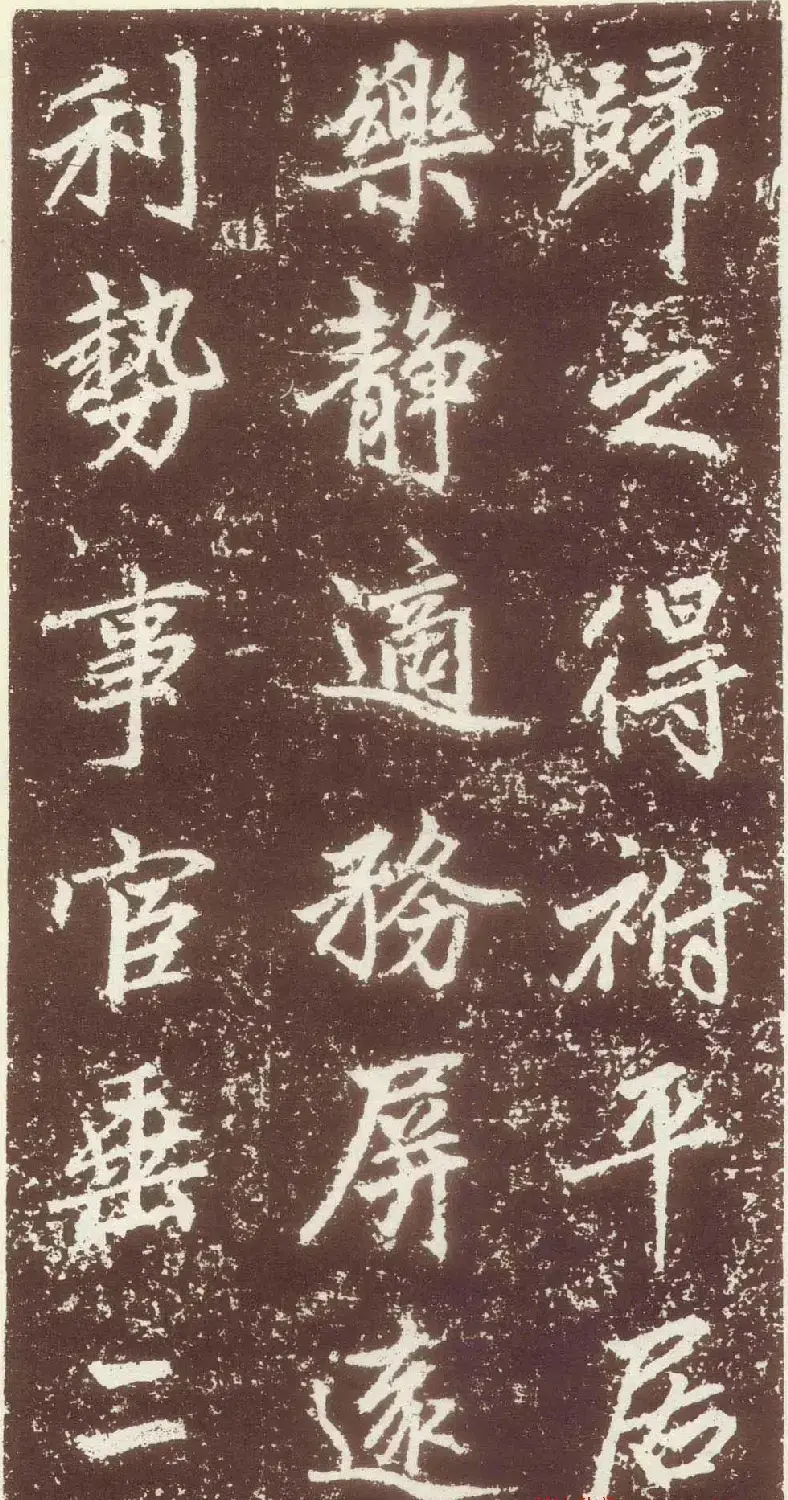 歸之得祔平居
樂静適務屏遠
利勢事官垂二